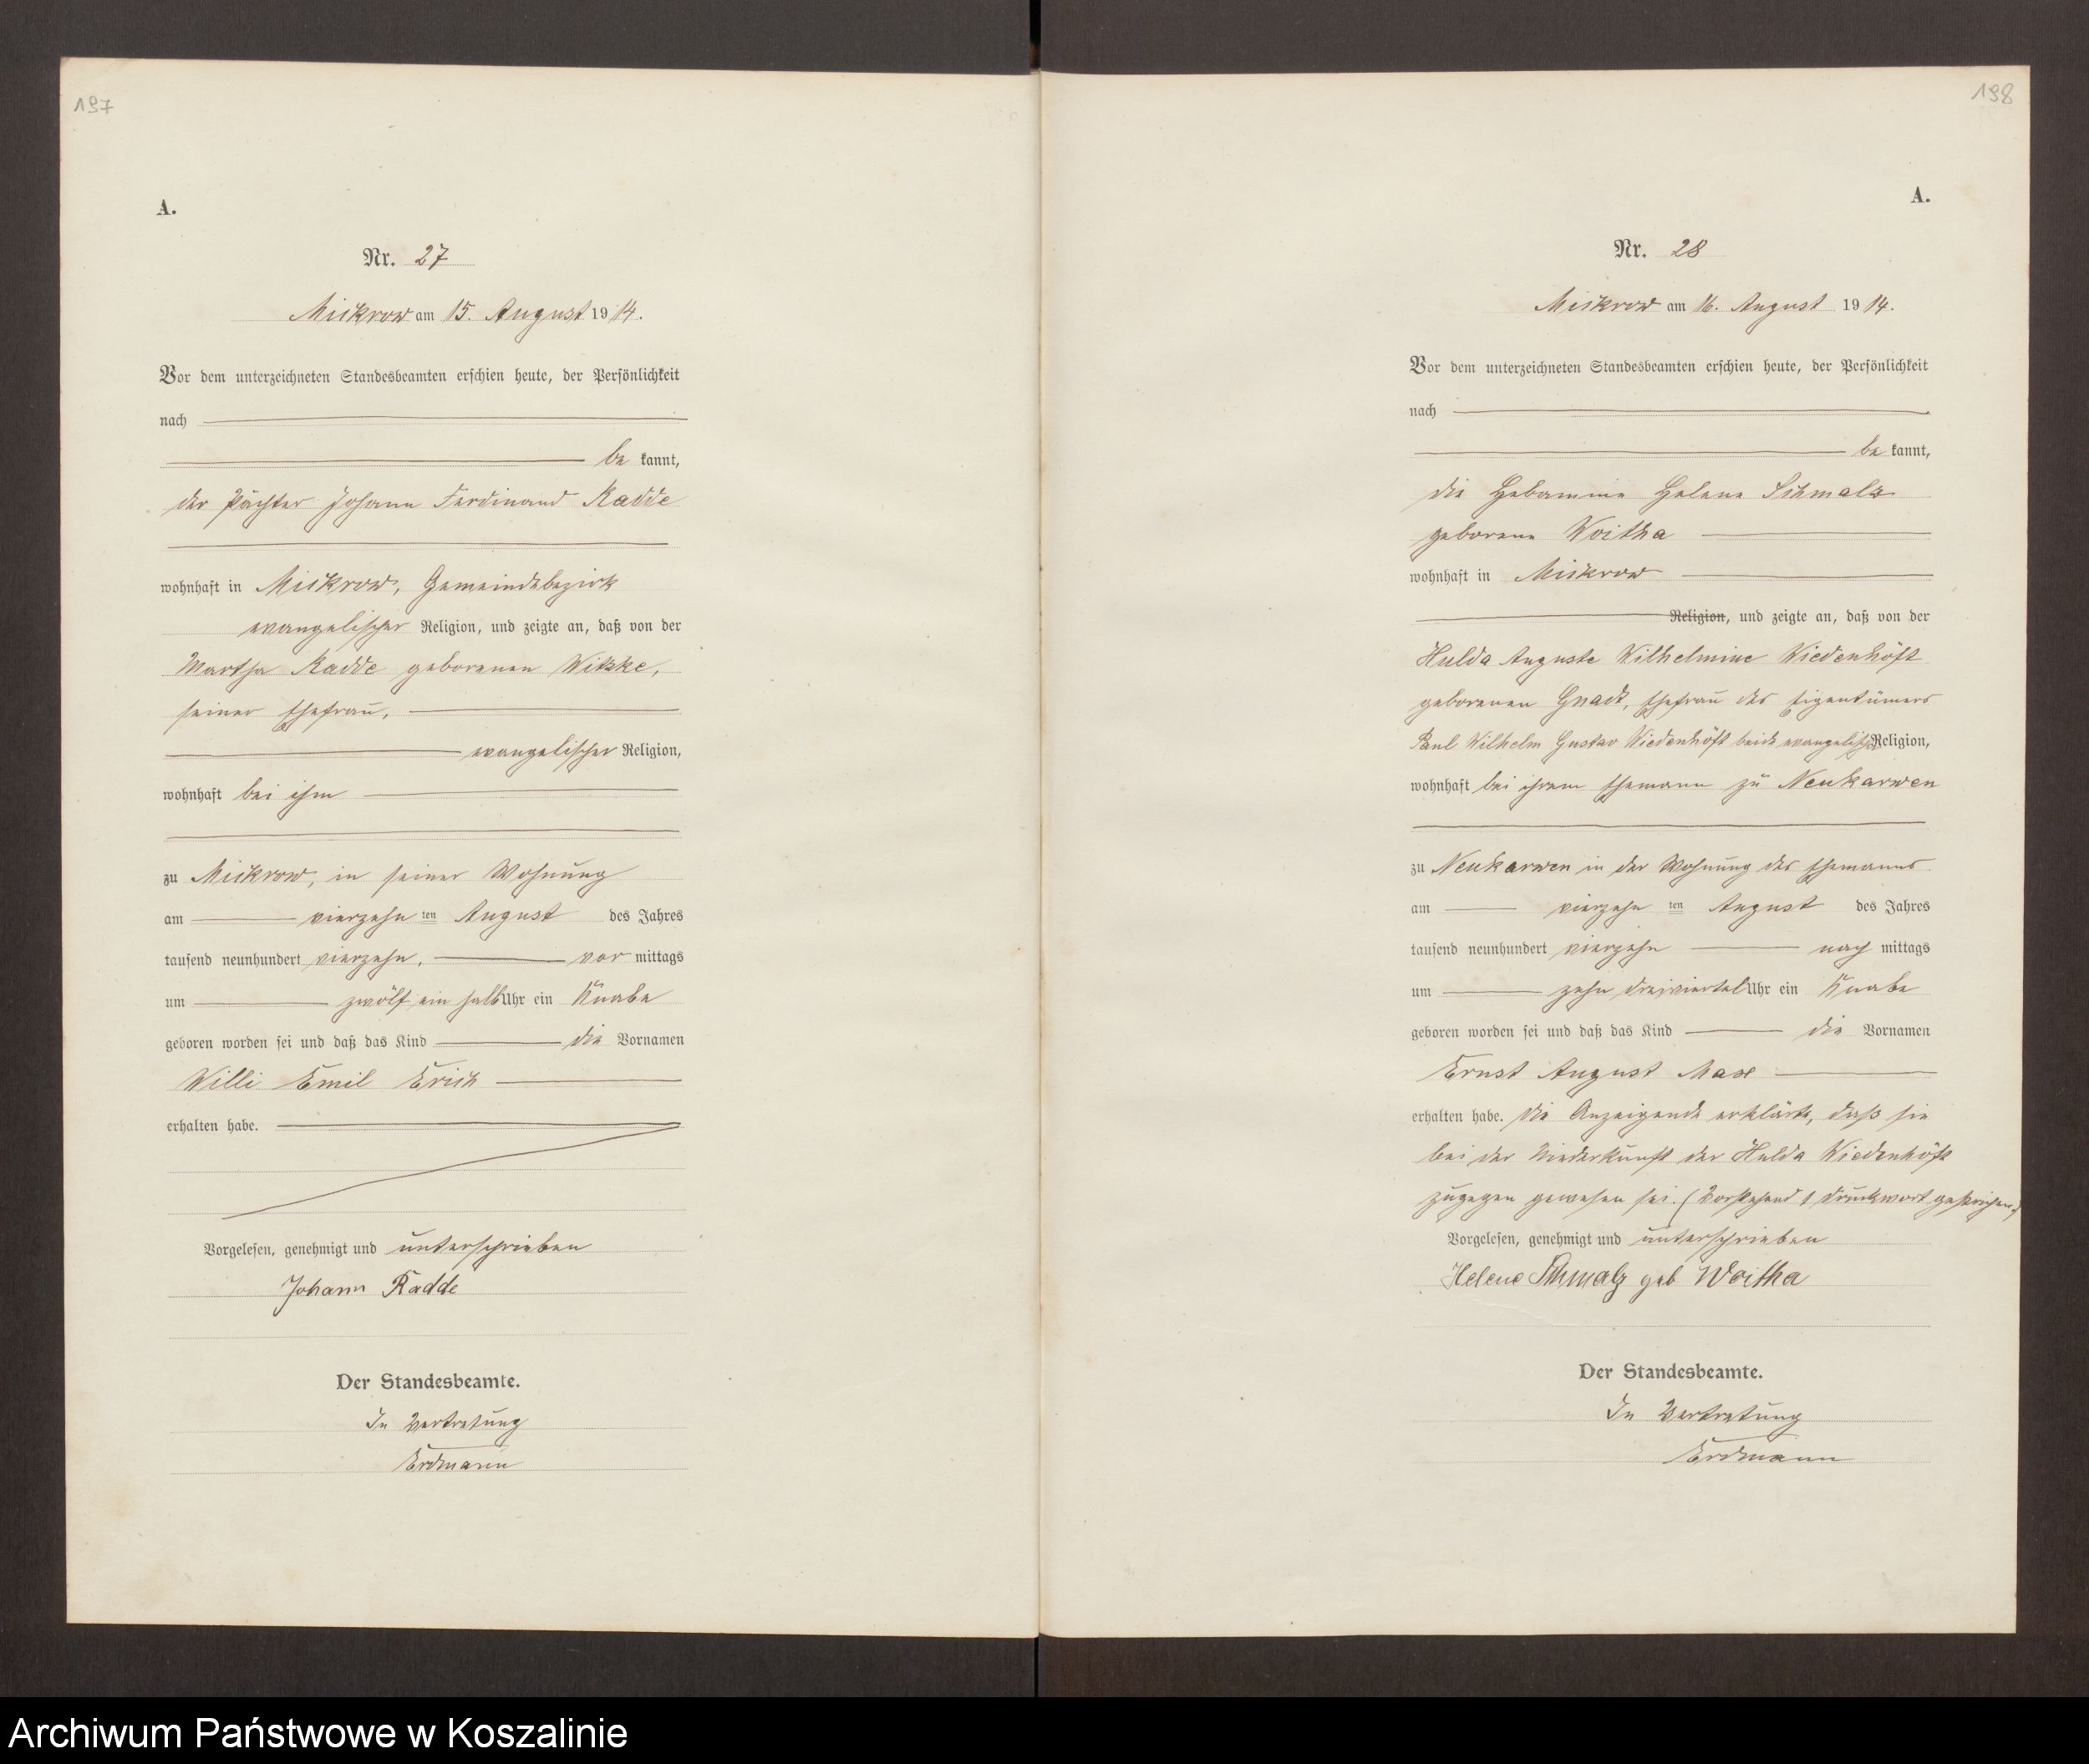 197
A.
Nr. 27
Mickrow am 15. August 1914.
Vor dem unterzeichneten Standesbeamten erschien heute, der Persönlichkeit
nach
be kannt,
der Pächter Johann Ferdinand Radde
wohnhaft in Mickrow, Gemeindebezirk
evangelischer Religion, und zeigte an, daß von der
Martha Radde geborenen Witzke,
seiner Ehefrau,
evangelischer Religion,
wohnhaft bei ihm
zu Mickrow, in seiner Wohnung
am vierzehn ten August des Jahres
tausend neunhundert vierzehn, vor mittags
um zwölf ein halb Uhr ein Knabe
geboren worden sei und daß das Kind die Vornamen
Willi Emil Erich
erhalten habe.
Vorgelesen, genehmigt und unterschrieben
Johann Radde
Der Standesbeamte.
In Vertretung
Erdmann
198
A.
Nr. 28
Mickrow am 16. August 1914.
Vor dem unterzeichneten Standesbeamten erschien heute, der Persönlichkeit
nach
be kannt,
die Hebamme Helene Schmalz
geborene Woitha
wohnhaft in Mickrow
Religion, und zeigte an, daß von der
Hulda Auguste Wilhelmine Wiedenhöft
geborenen Gnadt, Ehefrau des Eigentümers
Paul Wilhelm Gustav Wiedenhöft beide evangelischer Religion,
wohnhaft bei ihrem Ehemann zu Neukarwen
zu Neukarwen in der Wohnung des Ehemanns
am vierzehn ten August des Jahres
tausend neunhundert vierzehn nach mittags
um zehn dreiviertel Uhr ein Knabe
geboren worden sei und daß das Kind die Vornamen
Ernst August Max
erhalten habe. Die Anzeigende erklärte, daß sie
bei der Niederkunft der Hulda Wiedenhöft
zugegen gewesen sei. (Vorstehend 1 Druckwort gestrichen.)
Vorgelesen, genehmigt und unterschrieben
Helene Schmalz geb Woitha
Der Standesbeamte.
In Vertretung
Erdmann
Archiwum Państwowe w Koszalinie